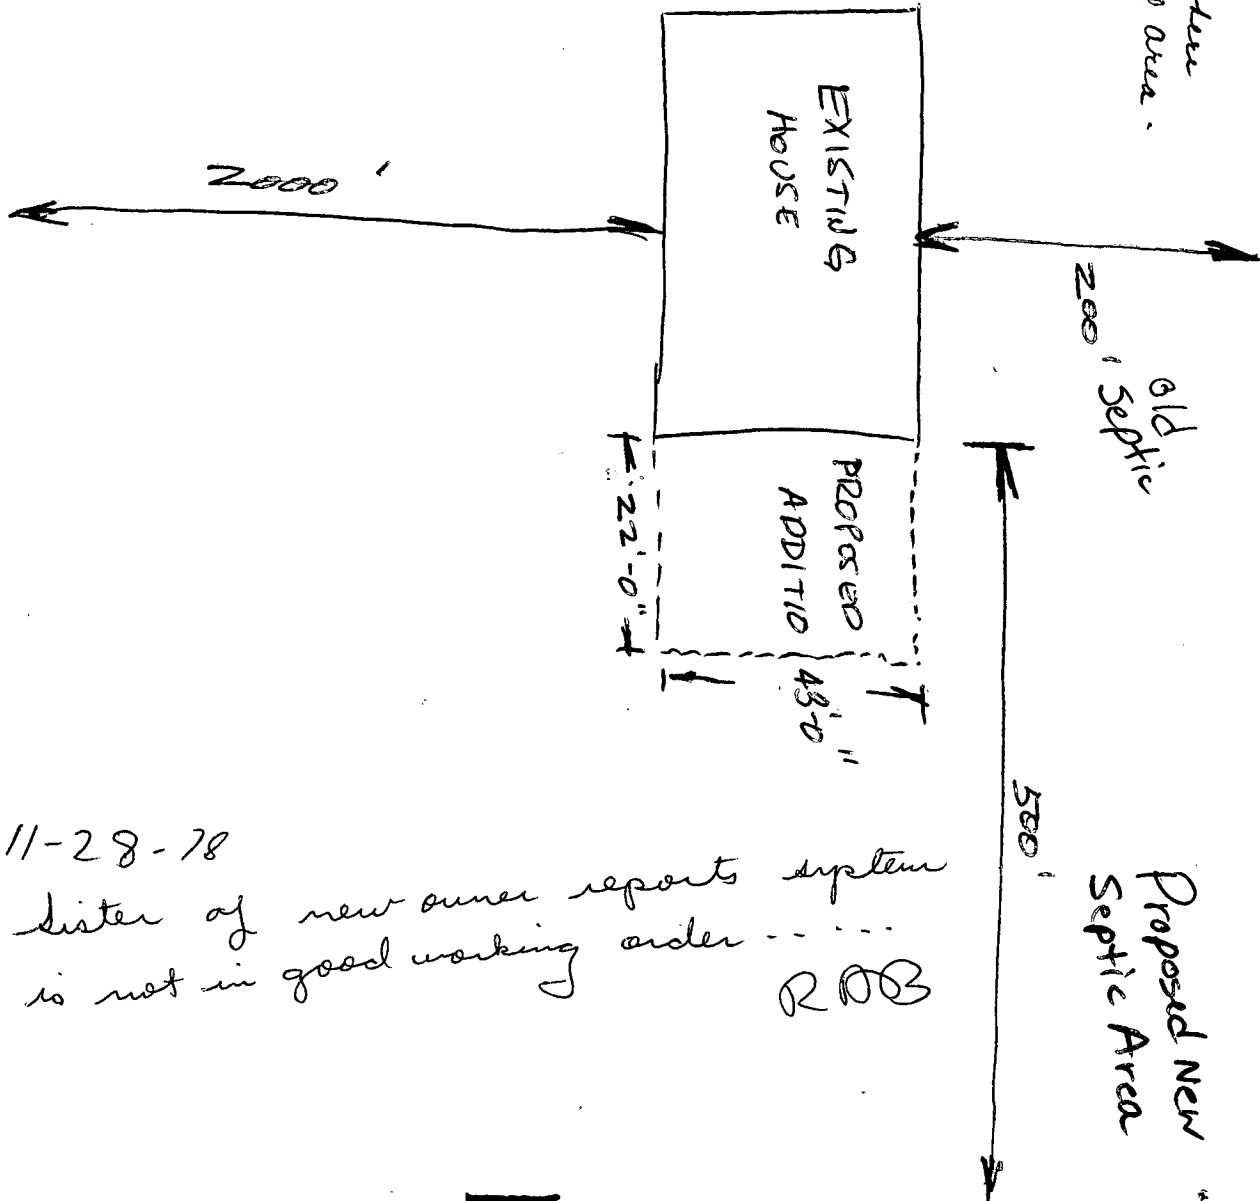 area.
EXISTING
HOUSE
2000'
200'
old
Septic
PROPOSED
ADDITIO
22'-0"
43'-0"
500'
Proposed New
Septic Area
11-28-78
Sister of new owner reports system
is not in good working order -----
RAB